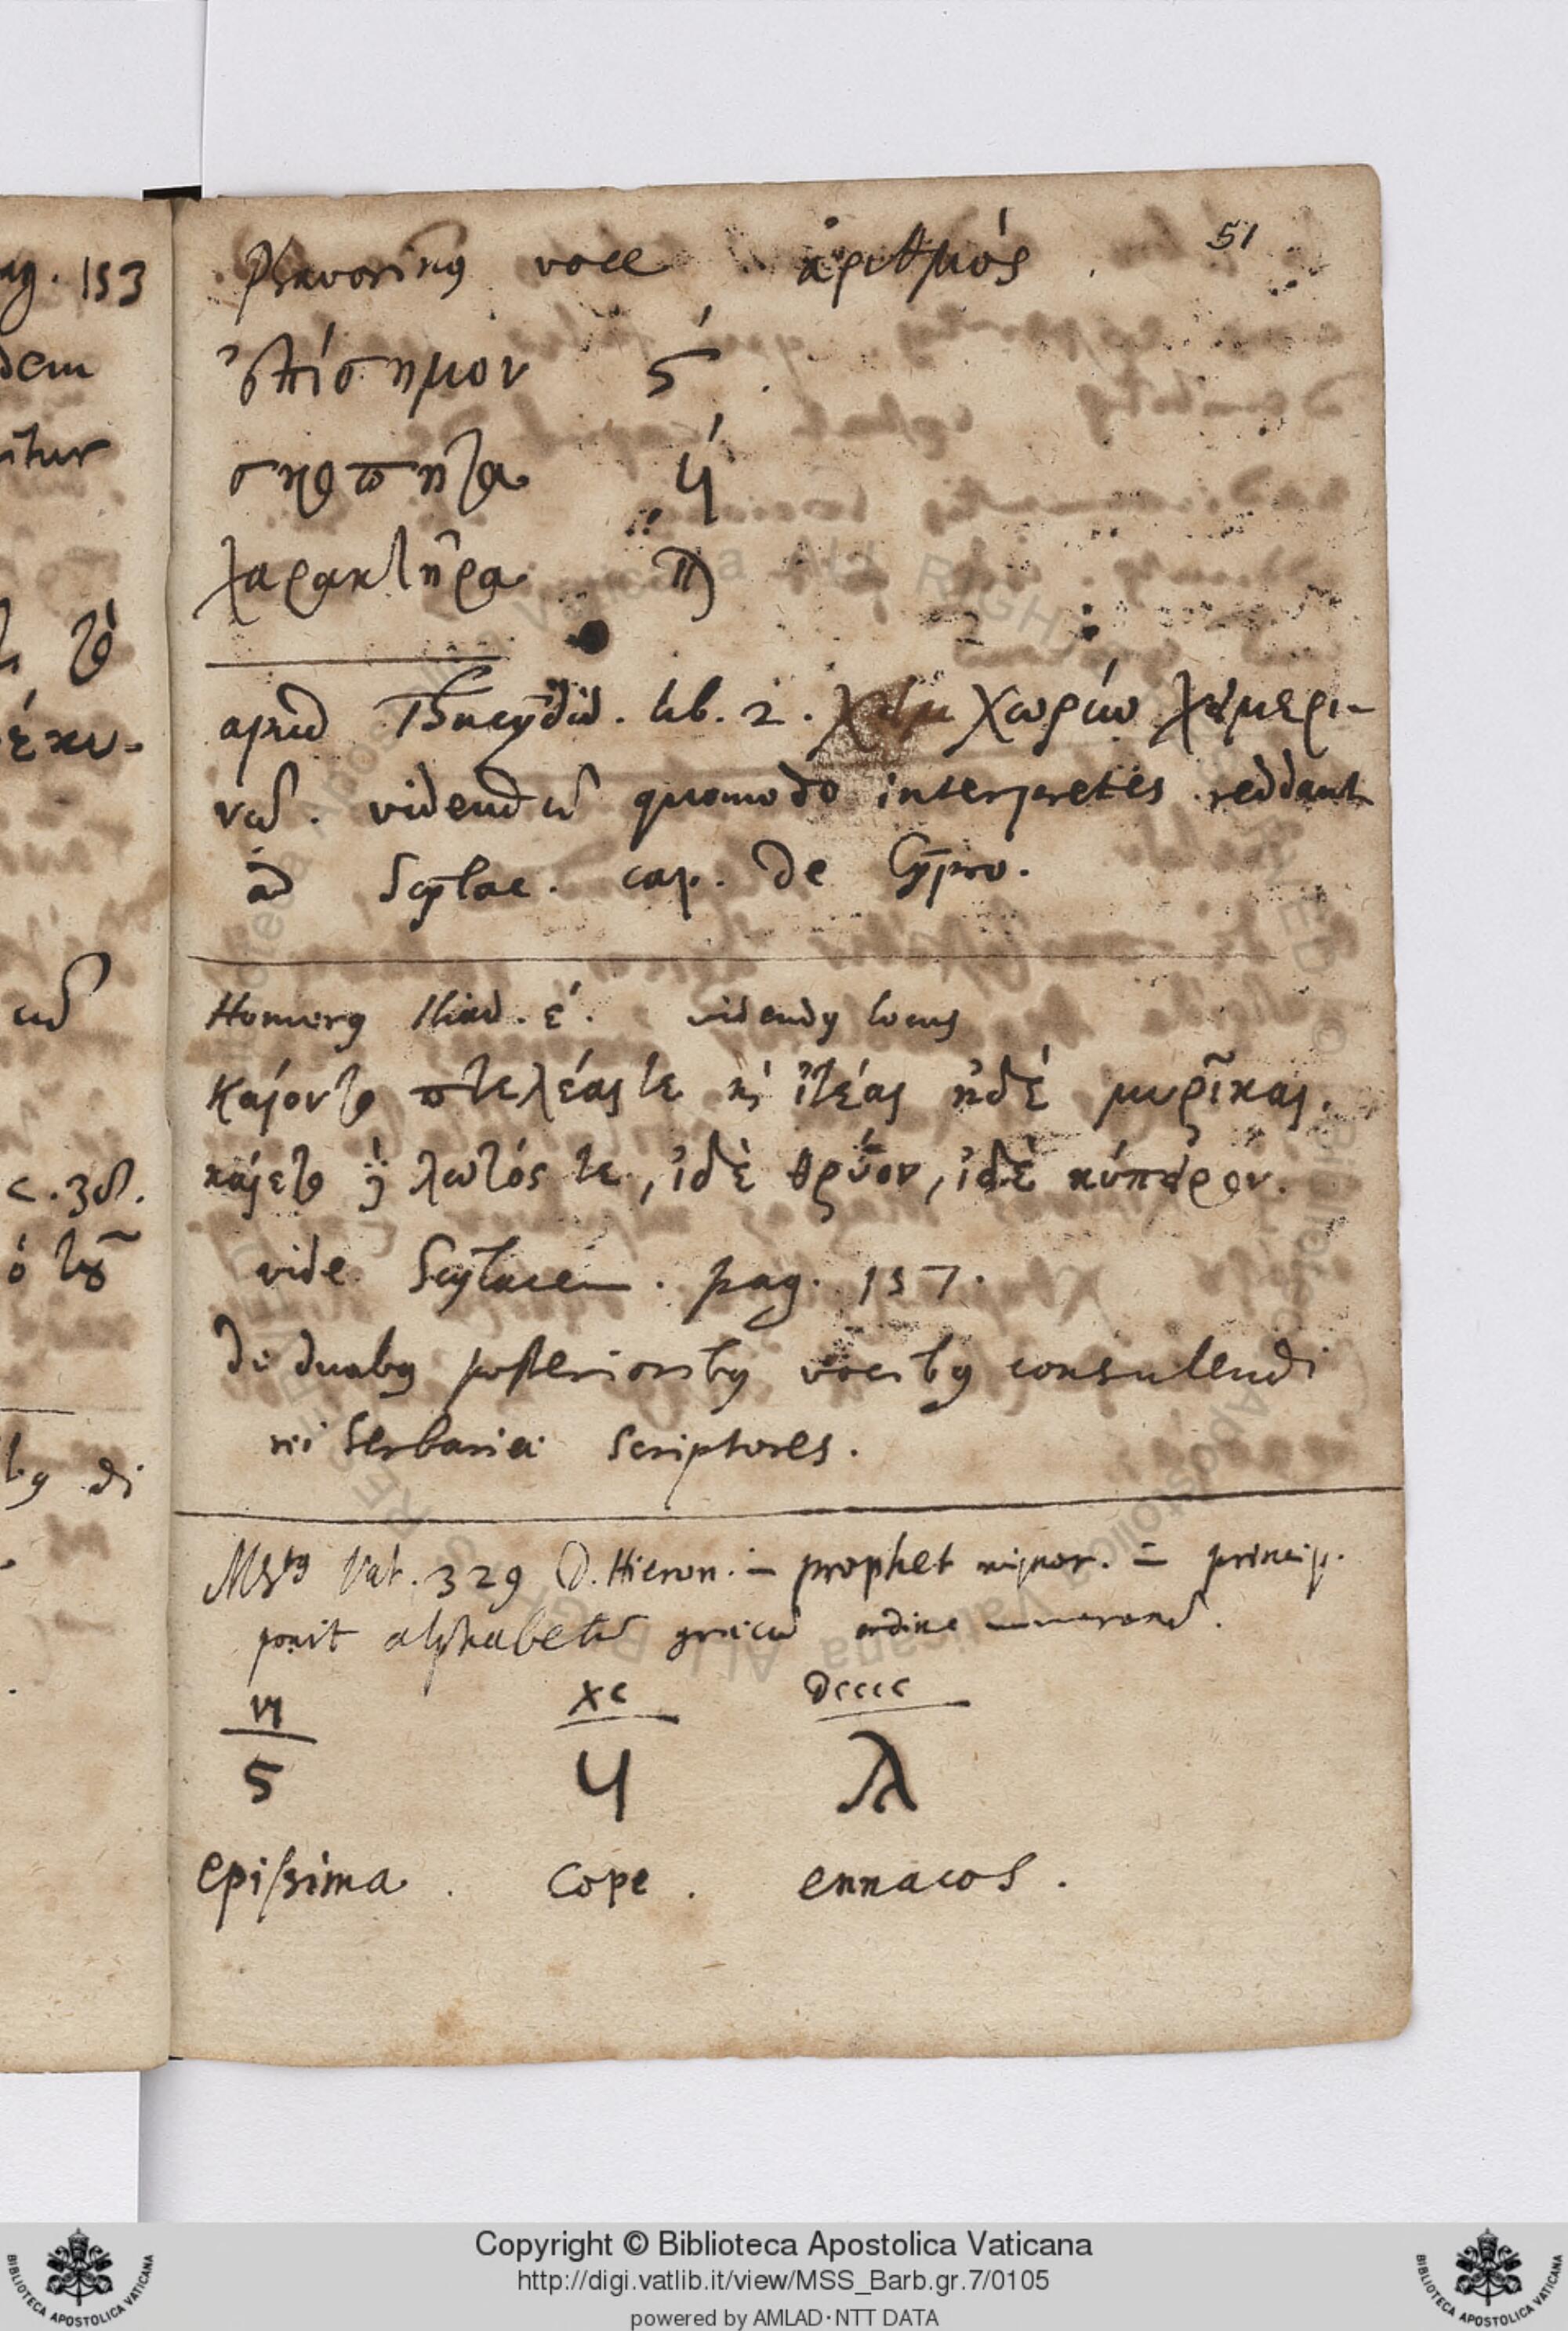 51
Phavorinus voce ἀριθμός
ἐπίσημον ϛ́.
σκοπῆτα ϟ́
χαρακτῆρα ϡ
apud Thucydid. lib. 2. χωρίω χειμερι-
νῶ. videndū quomodo interpretes reddant
ad Scylac. cap. de Cypro.
Homerus Iliad. έ. videndus locus
καίοντο πτελέας τε κ̀ ἰτέας ἠδέ μυρῖκας.
καίετο δὲ λωτός τε, ἰδὲ θρύον, ἰδὲ κύπειρον.
vide Scylacem. pag. 157.
de duabus posterioribus vocibus consulendi
rei herbariæ scriptores.
Mstus Vat. 329 D. Hieron. in prophet minor. in princip.
ponit alphabetū græcū ordine numerorū.
VI XC DCCCC
ϛ ϥ λ
epissima. cope. ennacos.
ag. 153
dem
itur
τὸ
έκυ-
c. 38.
ὁ τοῦ
di
Copyright © Biblioteca Apostolica Vaticana
http://digi.vatlib.it/view/MSS_Barb.gr.7/0105
powered by AMLAD·NTT DATA
BIBLIOTECA APOSTOLICA VATICANA
BIBLIOTECA APOSTOLICA VATICANA